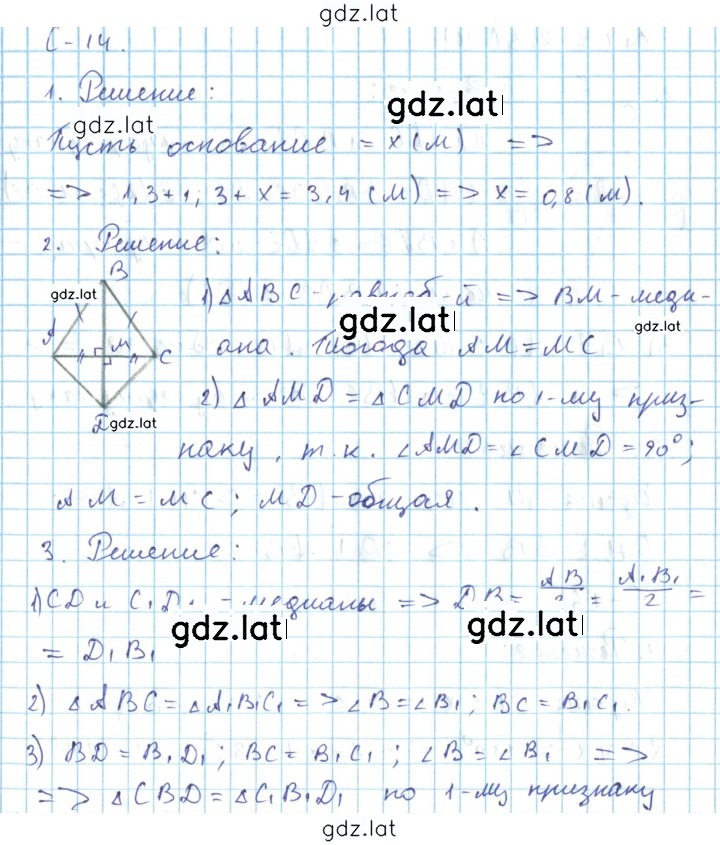 gdz.lat
С-14.
1. Решение:
gdz.lat
gdz.lat
Пусть основание = x (м) =>
=> 1,3+1,3+x = 3,4 (м) => x = 0,8 (м).
2. Решение:
B
gdz.lat
A
M
C
D
gdz.lat
1) △ABC - равноб-й => BM - меди-
gdz.lat
ана. Тогда AM = MC
2) △AMD = △CMD по 1-му приз-
наку, т.к. ∠AMD = ∠CMD = 90°;
AM = MC; MD - общая.
3. Решение:
1) CD и C₁D₁ - медианы => DB = AB/2 = A₁B₁/2 =
gdz.lat
gdz.lat
= D₁B₁
2) △ABC = △A₁B₁C₁ => ∠B = ∠B₁; BC = B₁C₁.
3) BD = B₁D₁; BC = B₁C₁; ∠B = ∠B₁ =>
=> △CBD = △C₁B₁D₁ по 1-му признаку
gdz.lat